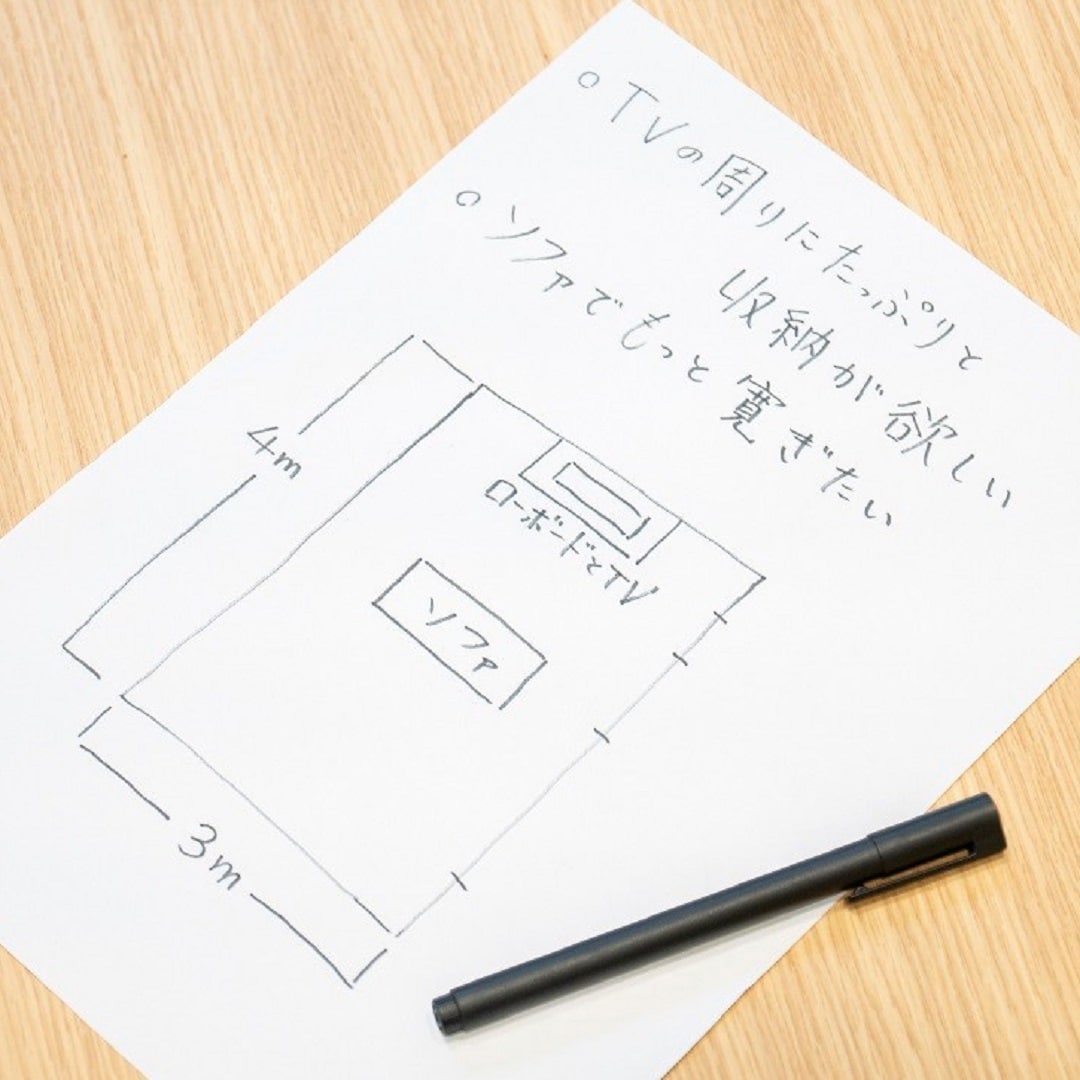 ○ TVの周りにたっぷりと
収納が欲しい
○ ソファでもっと寛ぎたい
4m
ローボードとTV
ソファ
3m